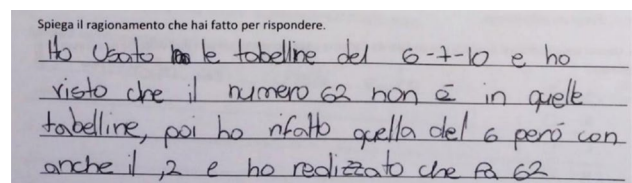 Spiega il ragionamento che hai fatto per rispondere.
Ho Usato le tabelline del 6-7-10 e ho
visto che il numero 62 non è in quelle
tabelline, poi ho rifatto quella del 6 però con
anche il ,2 e ho realizzato che fa 62